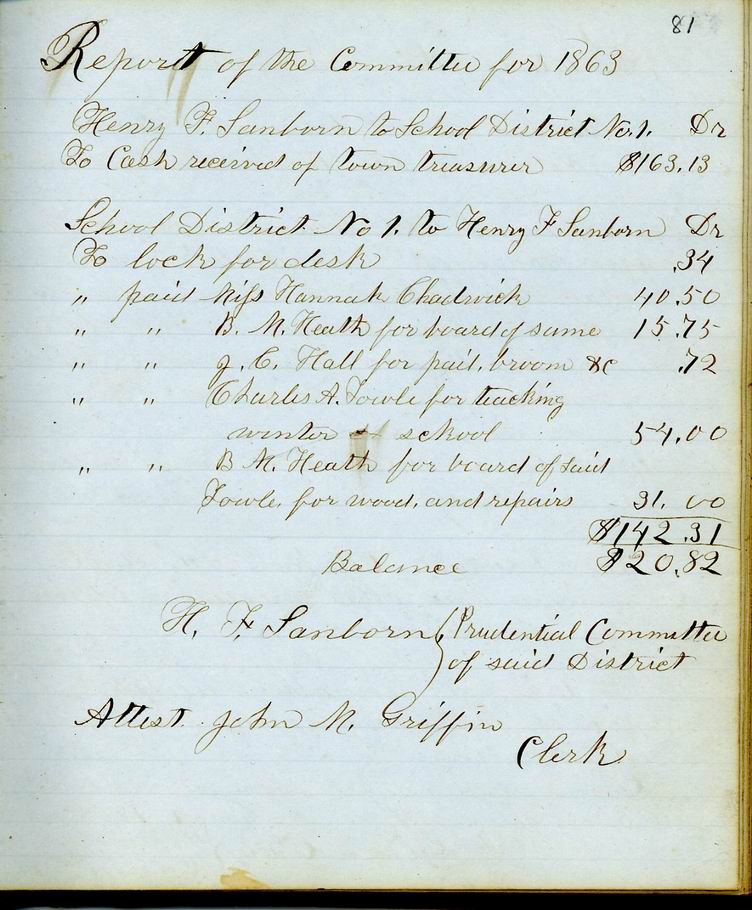 81
Report of the Committee for 1863
Henry F. Sanborn to School District No. 1. Dr
To Cash received of town treasurer $163.13
School District No 1. to Henry F Sanborn Dr
To lock for desk .34
" paid Miss Hannah Chadwick 40.50
" " B. M. Heath for board of same 15.75
" " J. C. Hall for pail, broom &c .72
" " Charles A. Towle for teaching
winter school 54.00
" " B M. Heath for board of said
Towle, for wood, and repairs 31.00
$142.31
Balance $20.82
H. F. Sanborn { Prudential Committee
of said District
Attest John M. Griffin
Clerk